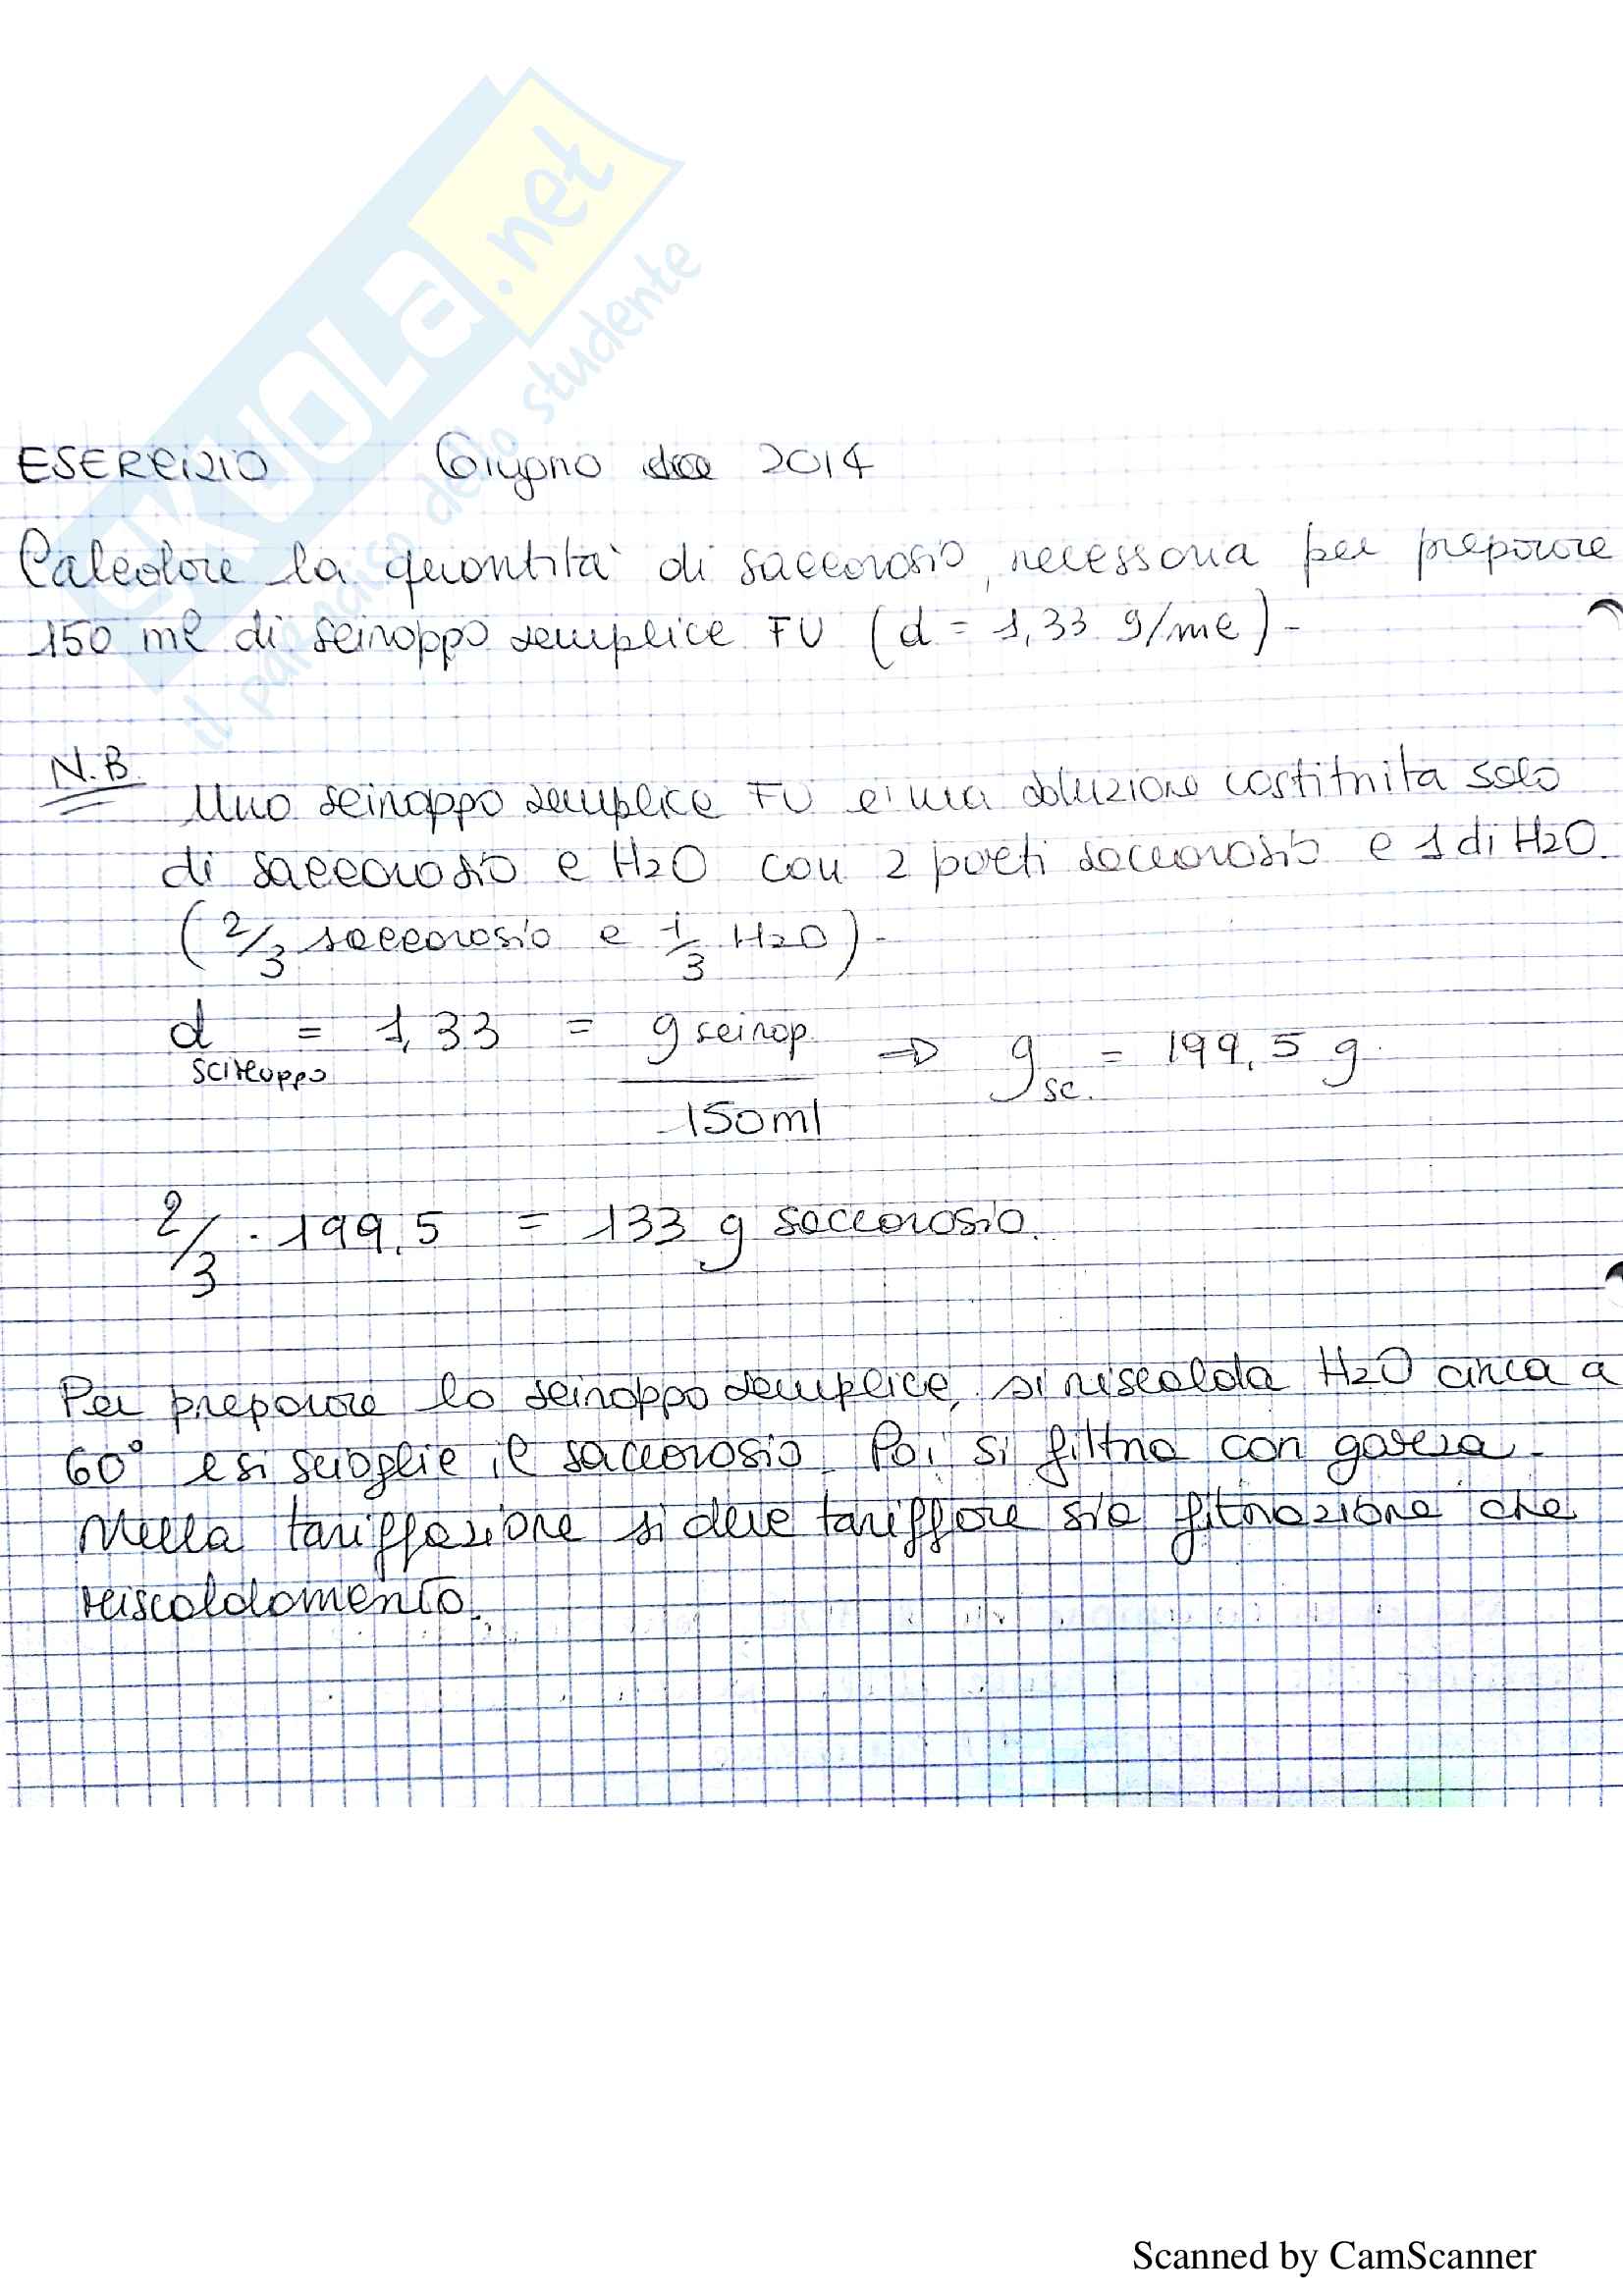 SKUOLA.net
il paradiso dello studente
ESERCIZIO Giugno 2014
Calcolare la quantità di saccarosio, necessaria per preparare
150 ml di sciroppo semplice FU (d = 1,33 g/ml)-
N.B.
Uno sciroppo semplice FU e' una soluzione costituita solo
di saccarosio e H2O con 2 parti saccarosio e 1 di H2O.
(2/3 saccarosio e 1/3 H2O)-
d sciroppo = 1,33 = g scirop. / 150ml => g sc. = 199,5 g.
2/3 · 199,5 = 133 g saccarosio.
Per preparare lo sciroppo semplice, si riscalda H2O circa a
60° e si scioglie il saccarosio. Poi si filtra con garza.
Nella tariffazione si deve tariffare sia filtrazione che
riscaldamento.
Scanned by CamScanner